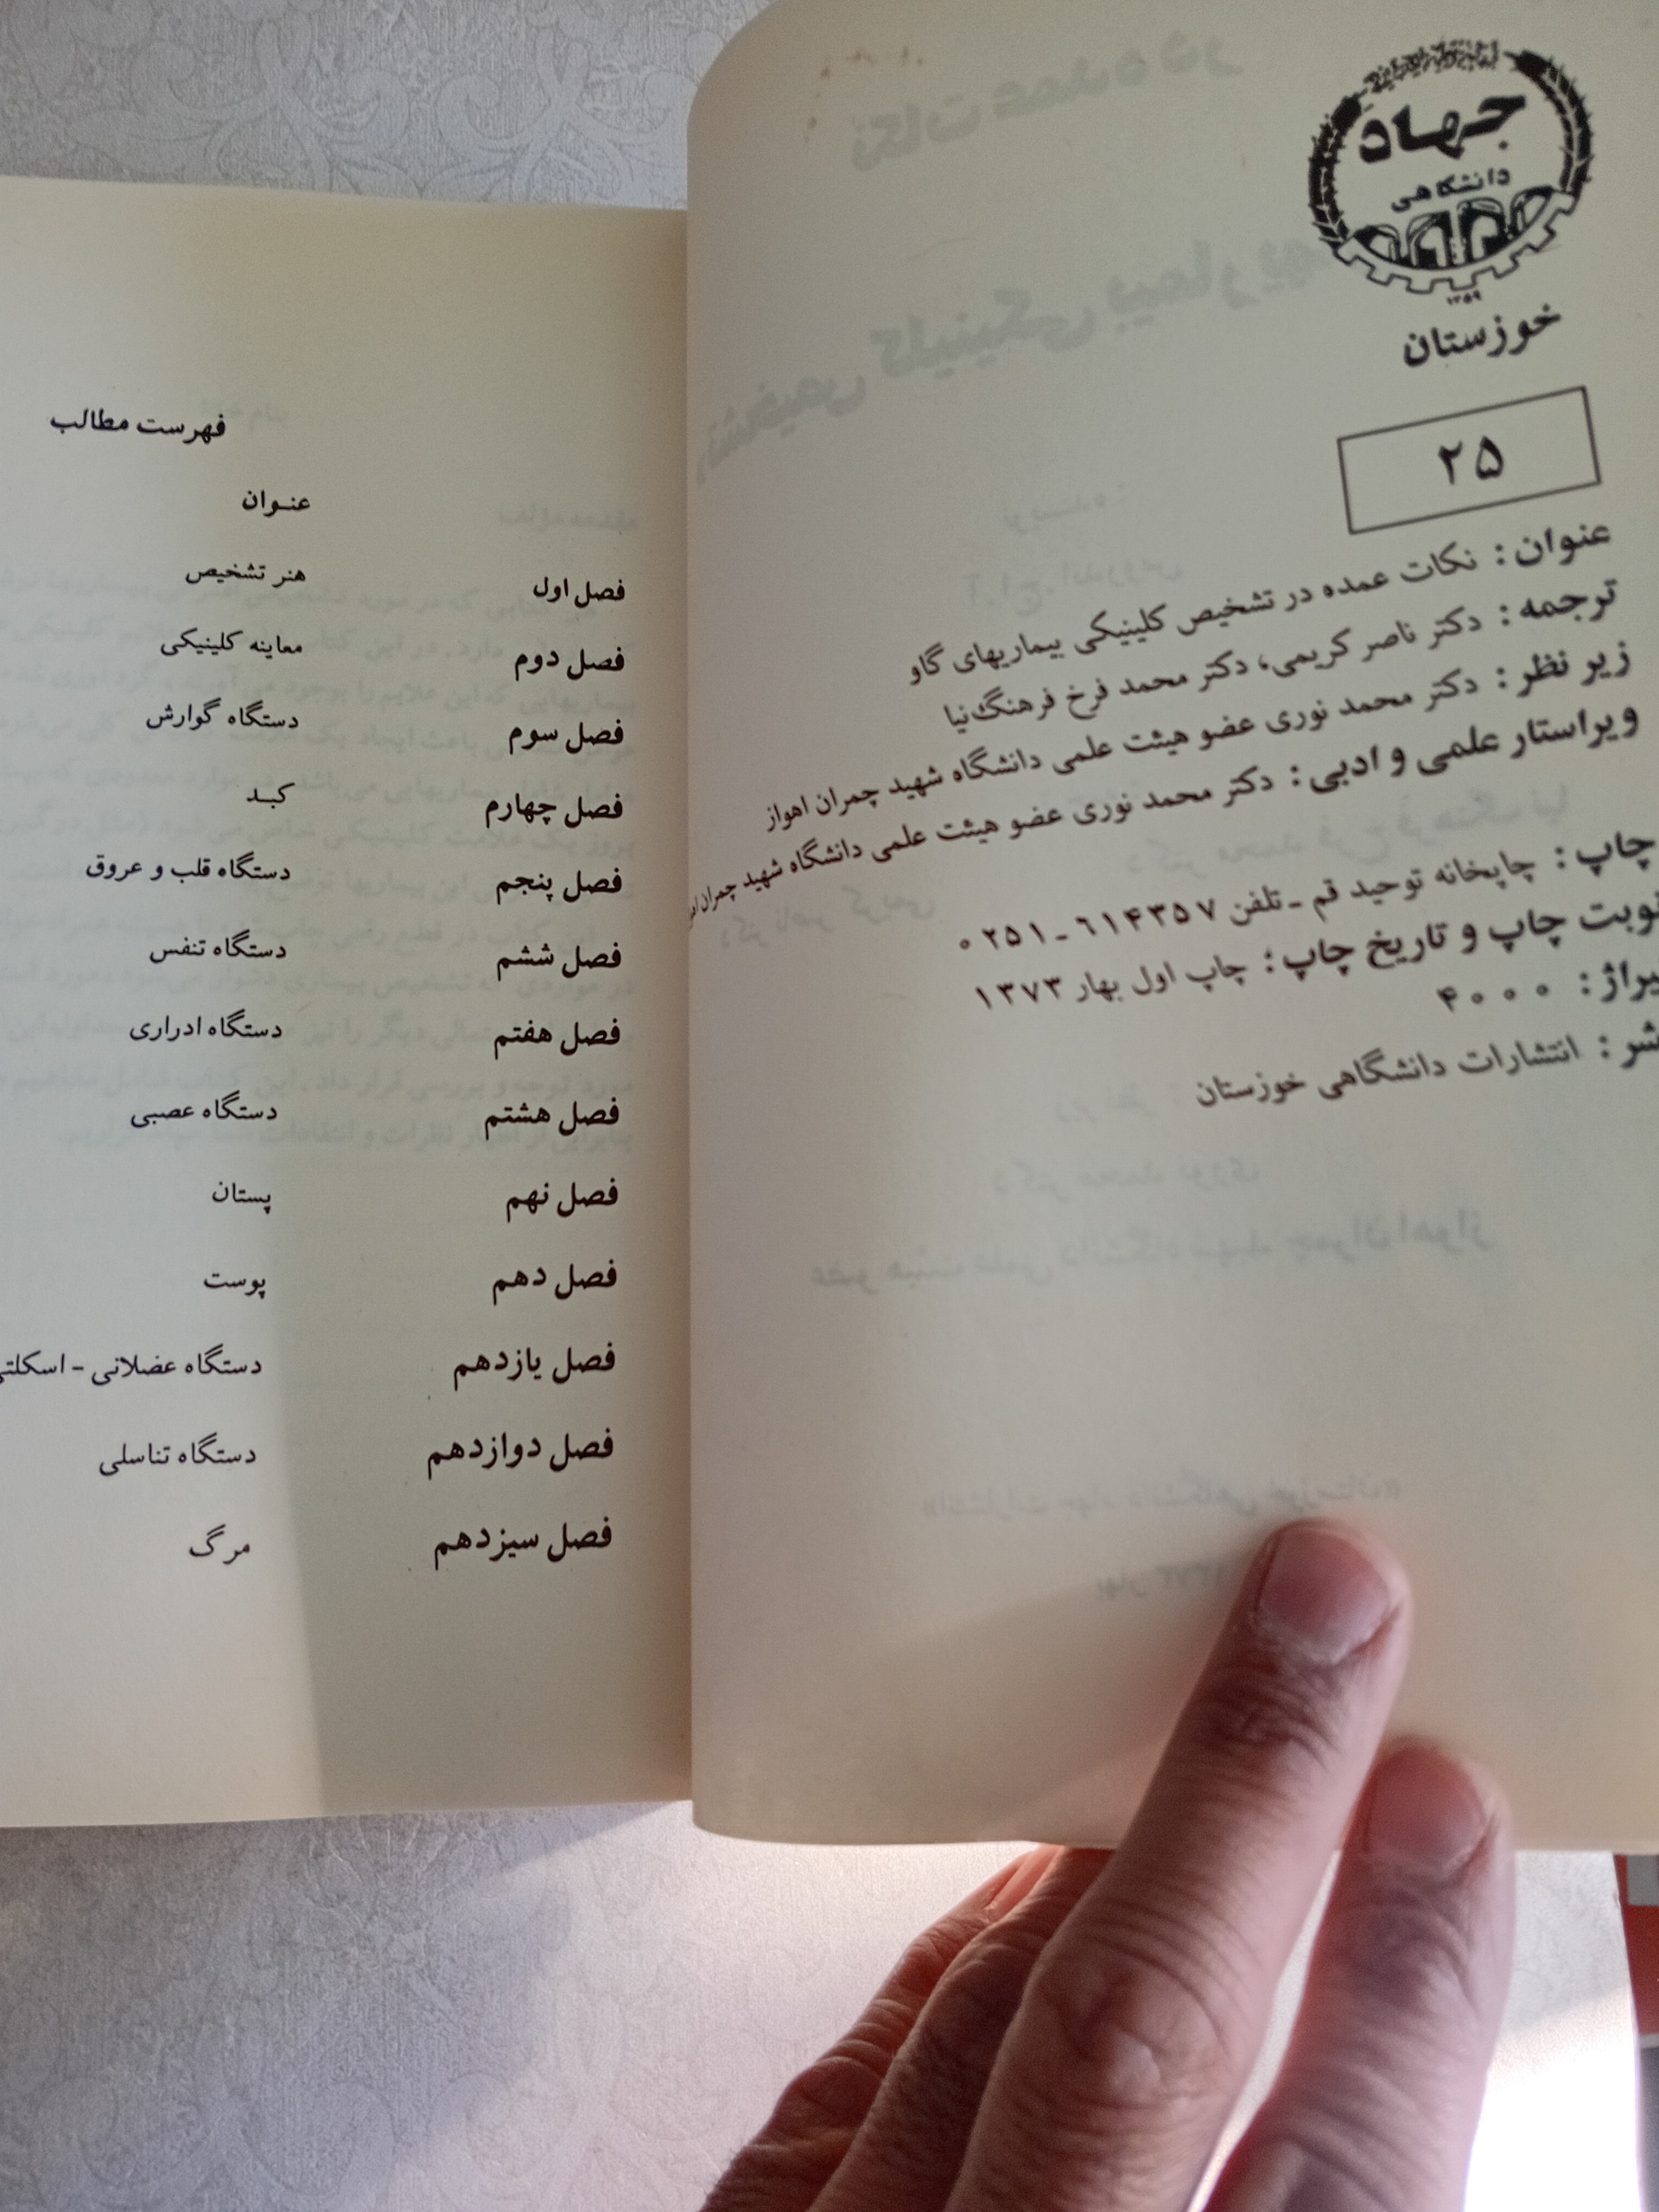 جهاد
دانشگاهی
۱۳۵۹
خوزستان
۲۵
عنوان : نکات عمده در تشخیص کلینیکی بیماریهای گاو
ترجمه : دکتر ناصر کریمی، دکتر محمد فرخ فرهنگ‌نیا
زیر نظر : دکتر محمد نوری عضو هیئت علمی دانشگاه شهید چمران اهواز
ویراستار علمی و ادبی : دکتر محمد نوری عضو هیئت علمی دانشگاه شهید چمران
چاپ : چاپخانه توحید قم ـ تلفن ۶۱۴۳۵۷ ـ ۰۲۵۱
نوبت چاپ و تاریخ چاپ : چاپ اول بهار ۱۳۷۳
یراژ : ۴۰۰۰
شر : انتشارات دانشگاهی خوزستان
فهرست مطالب
عنوان
فصل اول هنر تشخیص
فصل دوم معاینه کلینیکی
فصل سوم دستگاه گوارش
فصل چهارم کبد
فصل پنجم دستگاه قلب و عروق
فصل ششم دستگاه تنفس
فصل هفتم دستگاه ادراری
فصل هشتم دستگاه عصبی
فصل نهم پستان
فصل دهم پوست
فصل یازدهم دستگاه عضلانی - اسکلتی
فصل دوازدهم دستگاه تناسلی
فصل سیزدهم مرگ